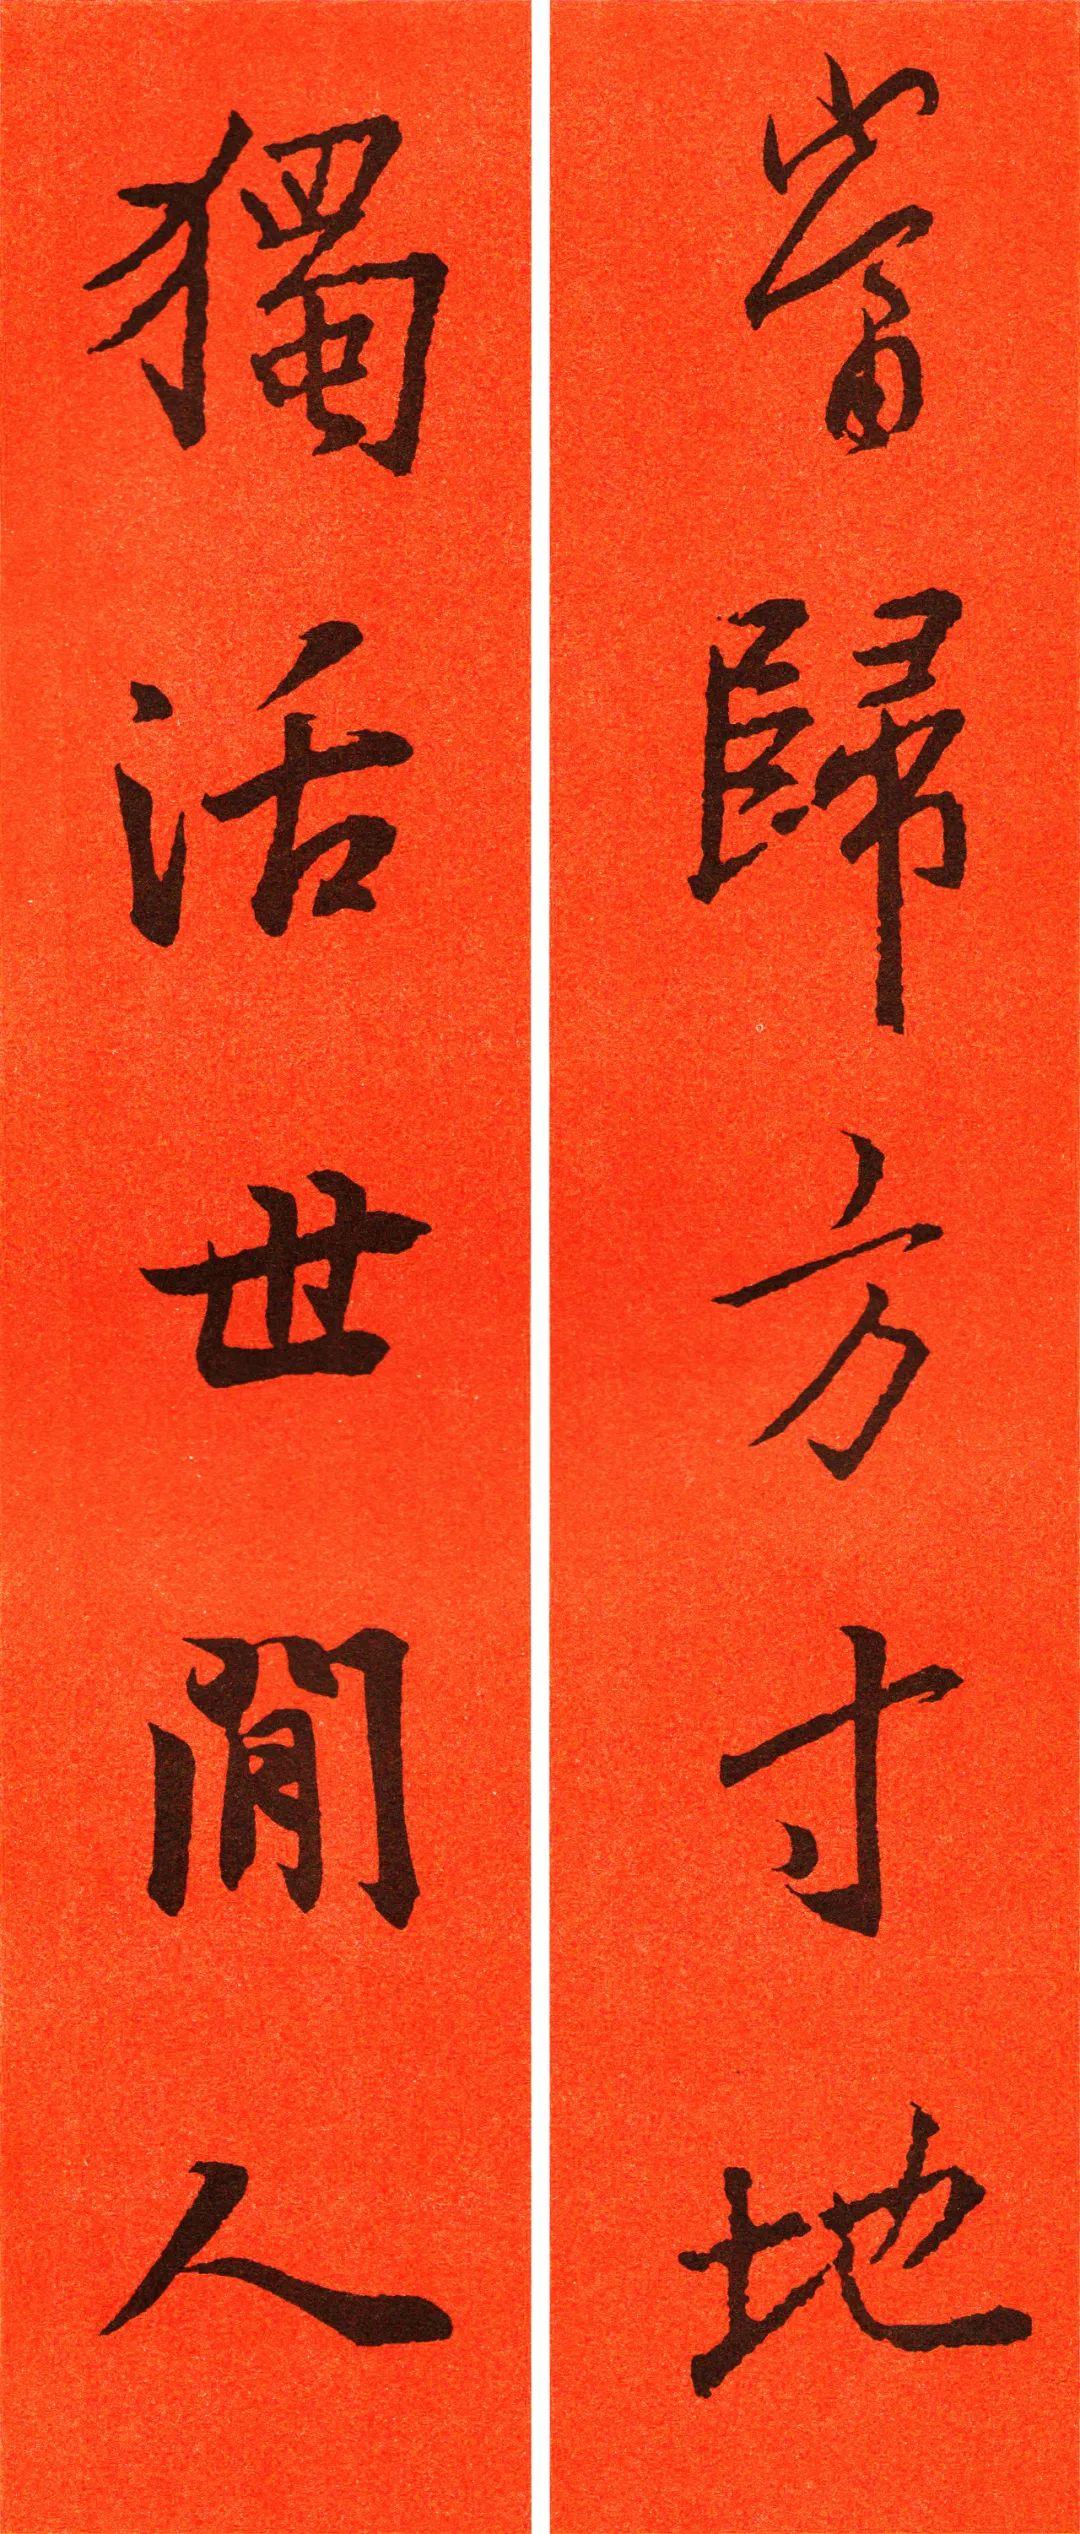 當歸方寸地
獨活世間人